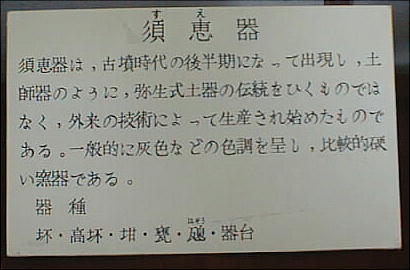 須恵器
須恵器は，古墳時代の後半期になって出現し，土
師器のように，弥生式土器の伝統をひくものでは
なく，外来の技術によって生産され始めたもので
ある。一般的に灰色などの色調を呈し，比較的硬
い窯器である。
器種
坏・高坏・坩・甕・𤭯・器台